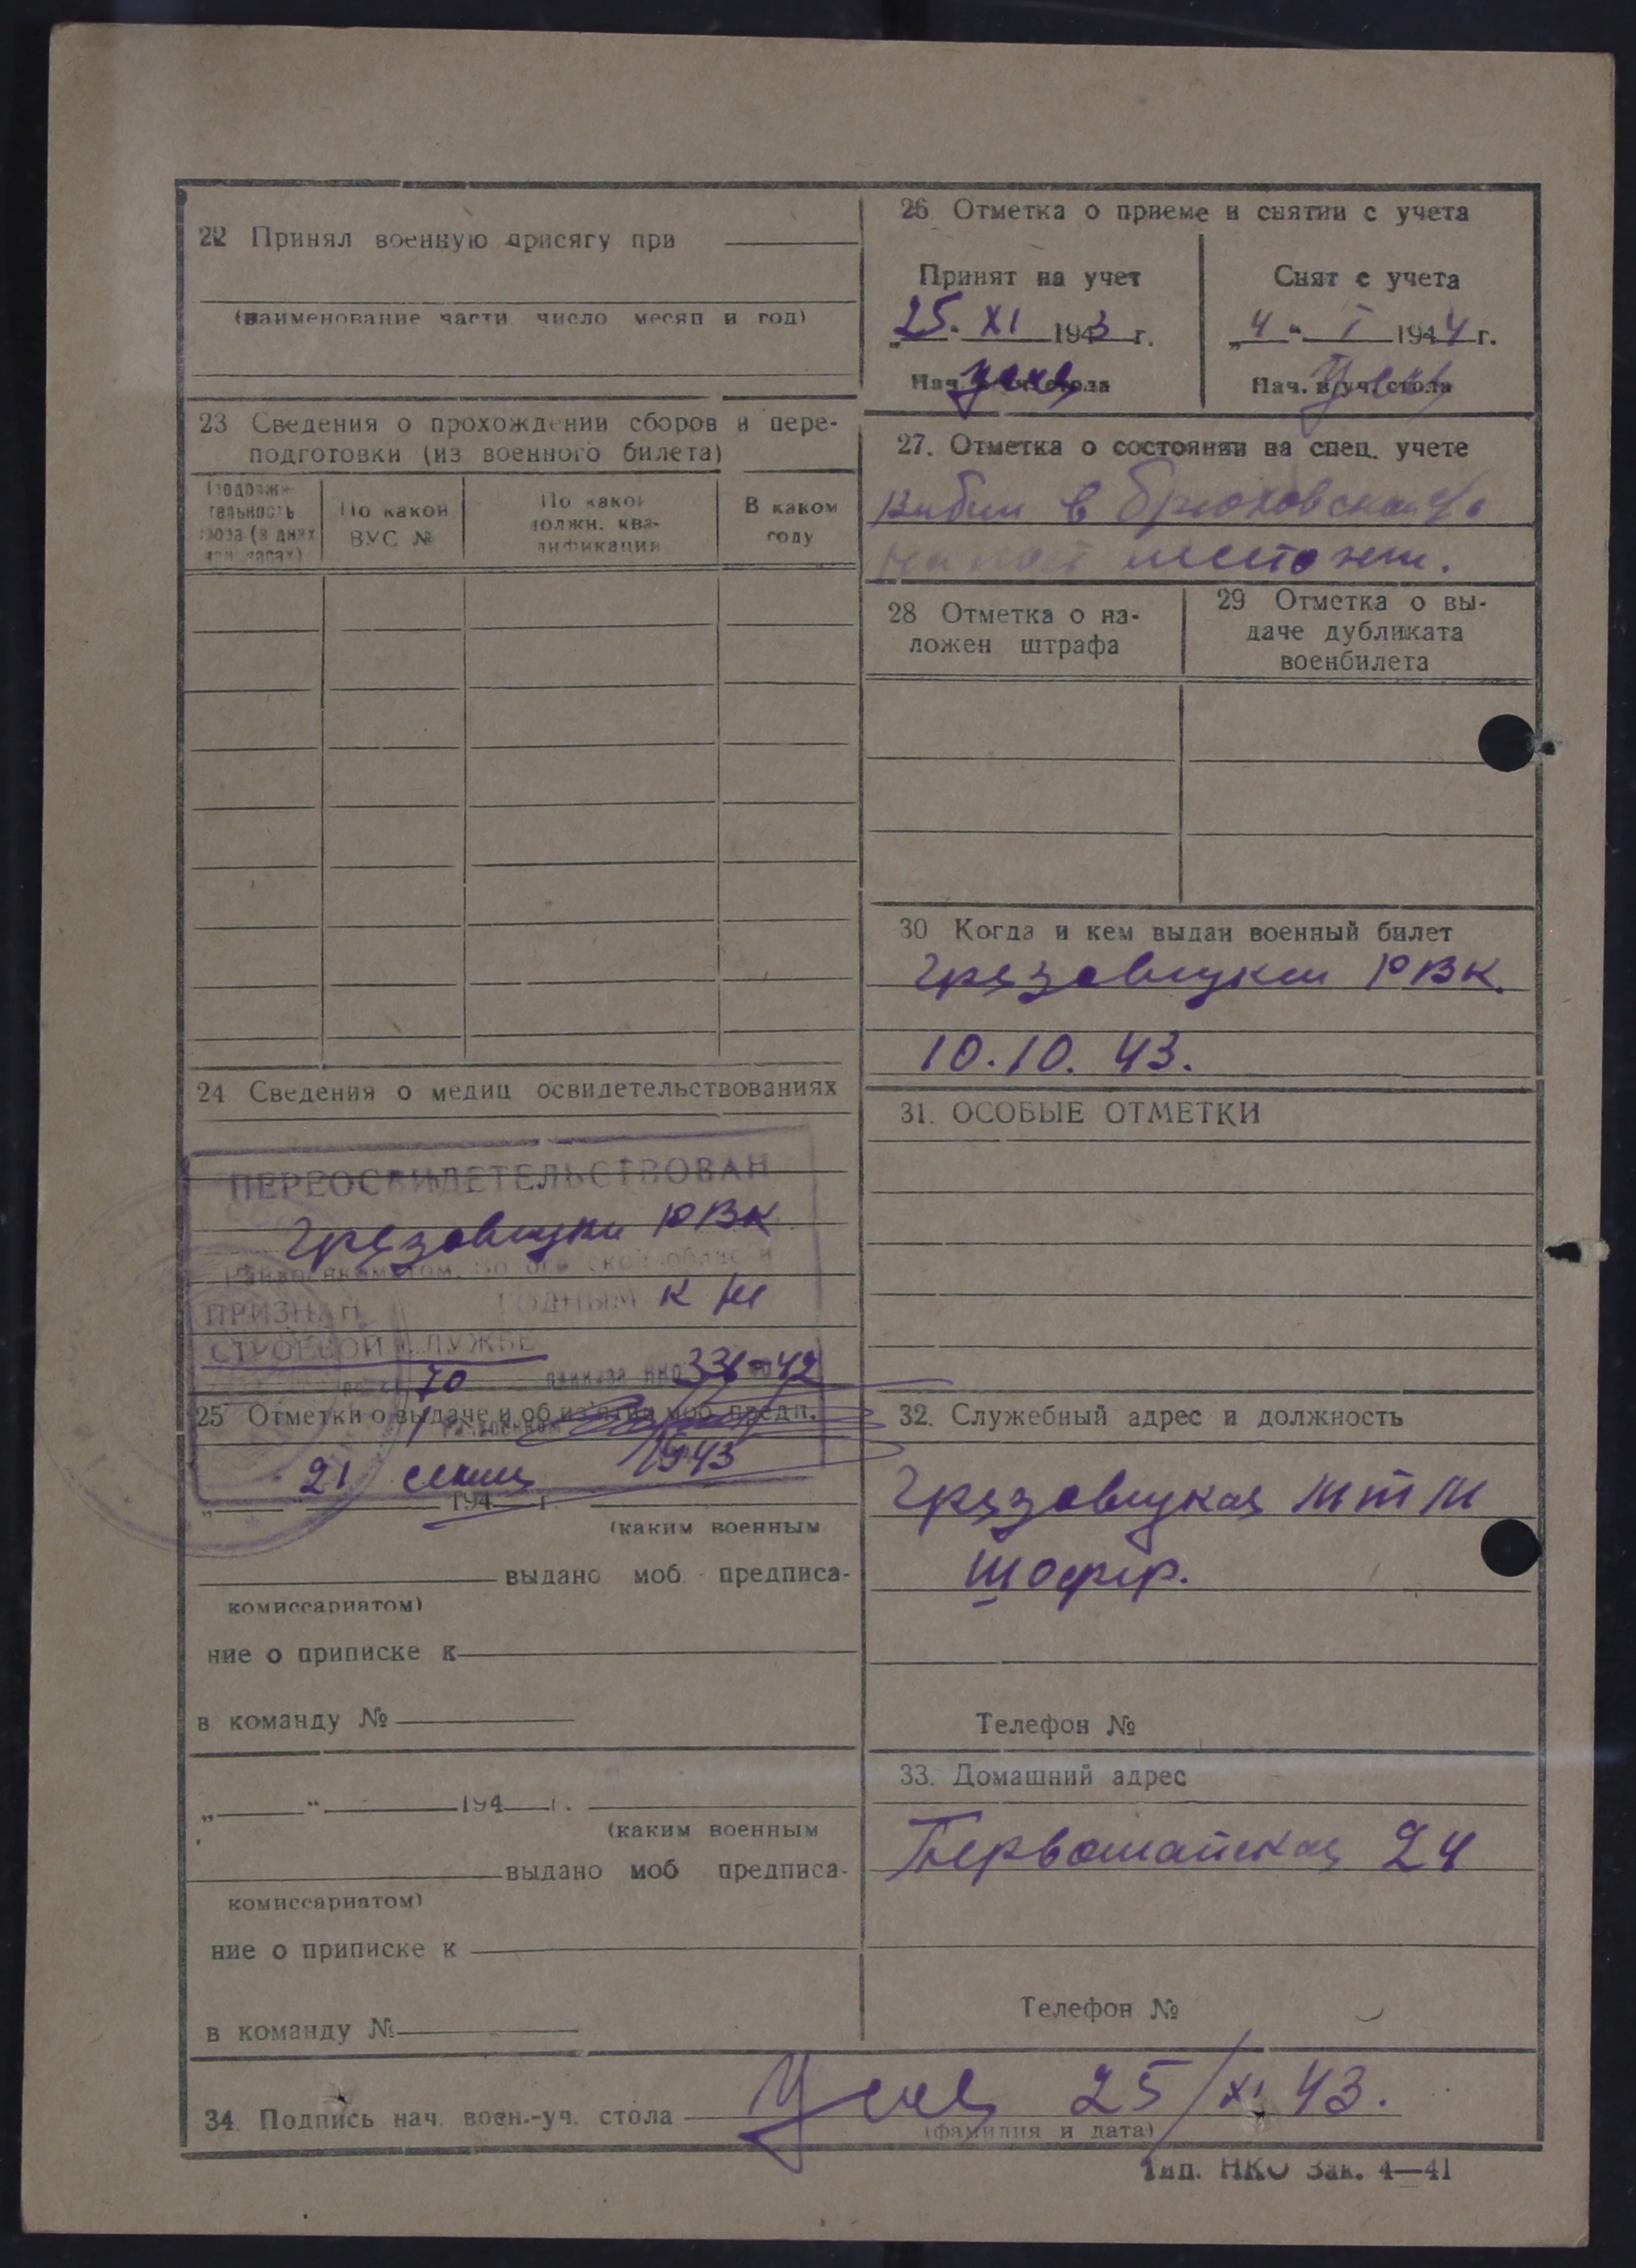 22 Принял военную присягу при
(наименование части число месяц и год)
23 Сведения о прохождении сборов и пере-
подготовки (из военного билета)
Продолжи-
тельность
сбора (в днях
или часах)
По какой
ВУС №
По какой
должн. ква-
лификации
В каком
году
24 Сведения о медиц освидетельствованиях
ПЕРЕОСВИДЕТЕЛЬСТВОВАН
Грязовецким РВК
Райвоенкоматом, Вологодской области
ПРИЗНАН ГОДНЫМ к не
СТРОЕВОЙ СЛУЖБЕ
по ст. 70 приказа НКО 336-42
25 Отметки о выдаче и об из'ятии моб предп.
21 1943
„ “ 194 г.
(каким военным
выдано моб предписа-
комиссариатом)
ние о приписке к
в команду №
„ “ 194 г.
(каким военным
выдано моб предписа-
комиссариатом)
ние о приписке к
в команду №
26 Отметка о приеме и снятии с учета
Принят на учет
25. XI 1943 г.
Нач. в/уч. стола
Снят с учета
„4“ I 1944 г.
Нач. в/уч. стола
27. Отметка о состоянии на спец. учете
выбыл в
местожит.
28 Отметка о на-
ложен штрафа
29 Отметка о вы-
даче дубликата
военбилета
30 Когда и кем выдан военный билет
Грязовецким РВК.
10.10.43.
31. ОСОБЫЕ ОТМЕТКИ
32. Служебный адрес и должность
Грязовецкая МТМ
шофер.
Телефон №
33. Домашний адрес
Первомайская 24
Телефон №
34. Подпись нач. воен.-уч. стола 25/XI 43.
(фамилия и дата)
Тип. НКО Зак. 4—41